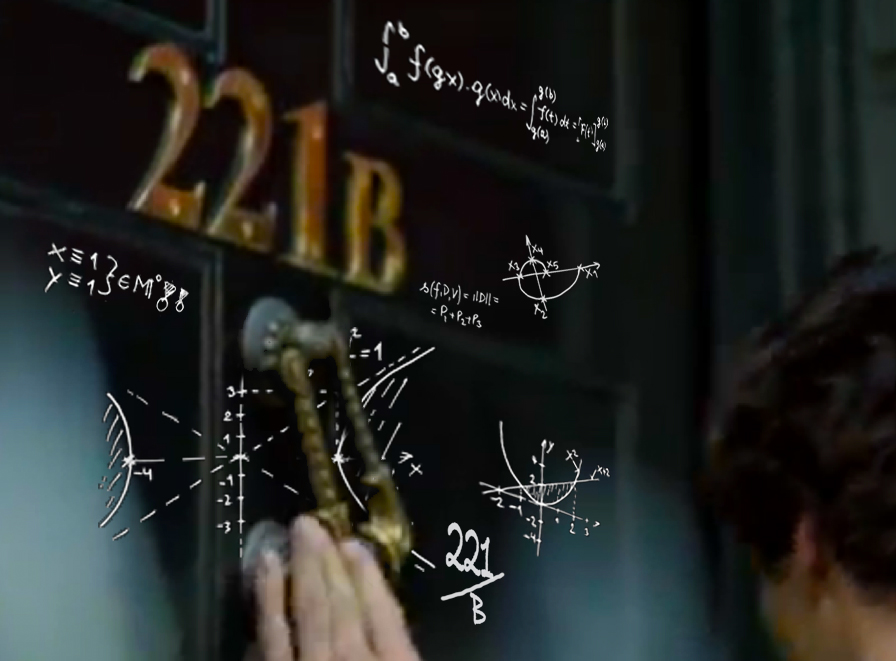 ∫ₐᵇ f(gx).g(x)dx = ∫_g(a)^g(b) f(t) dt = [F(t)]_g(a)^g(b)
221B
x ≡ 1
y ≡ 1 } ∈ M°
s(f,D,V) = ||D|| =
= P₁+P₂+P₃
x₄
x₃ x₅ x₁
x₂
2
-=1
3
2
1
-4 x
-1
-2
-3
y
x² x+2
-2 -1 2 3
221
B